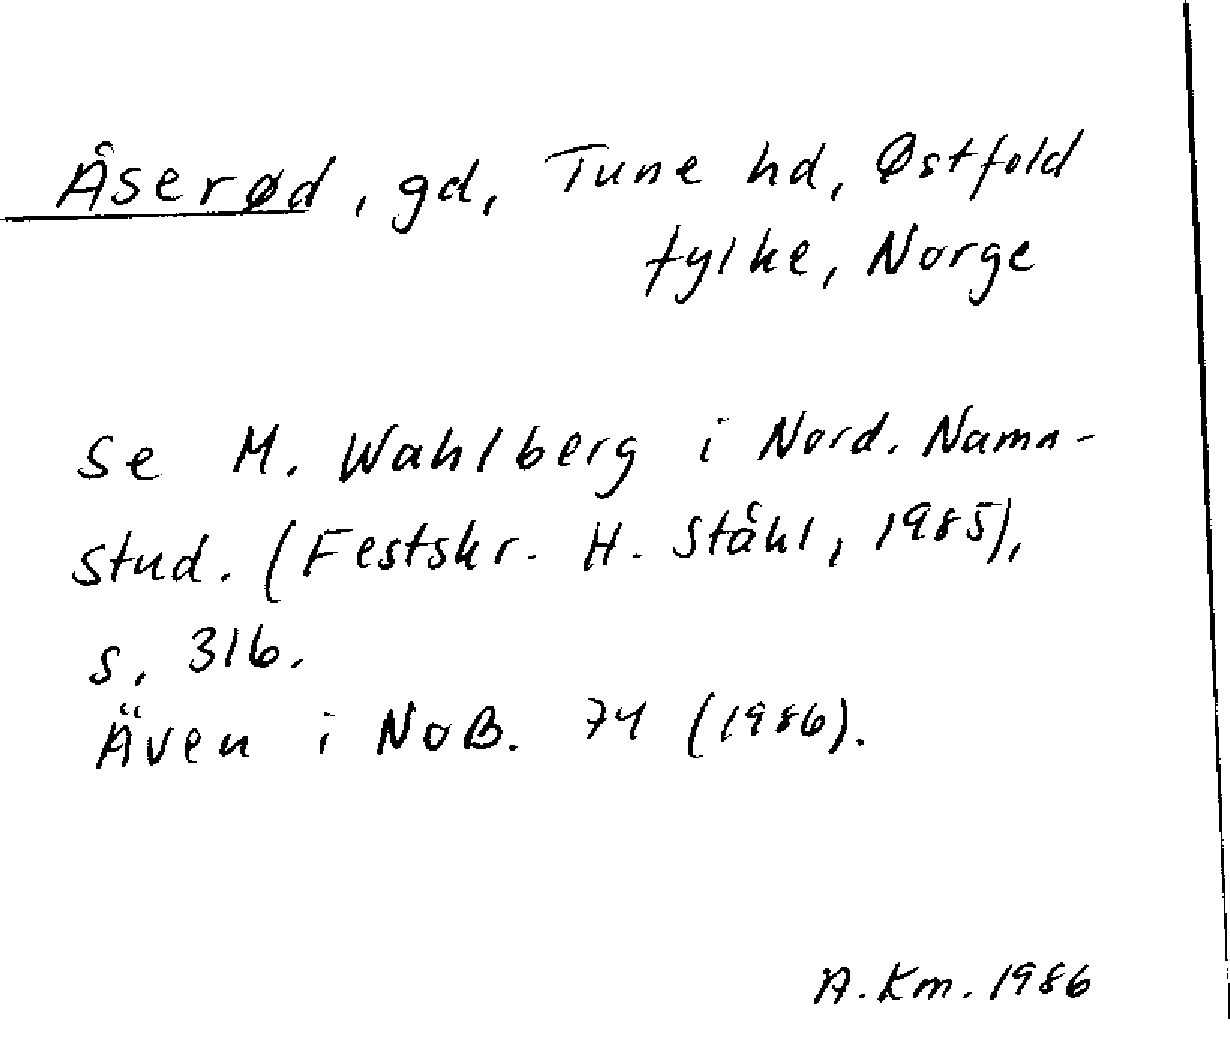 Åserød, gd, Tune hd, Østfold
fylke, Norge
se M. Wahlberg i Nord. Namn-
stud. (Festskr. H. Ståhl, 1985),
s. 316.
Även i NoB. 74 (1986).
A. Km. 1986